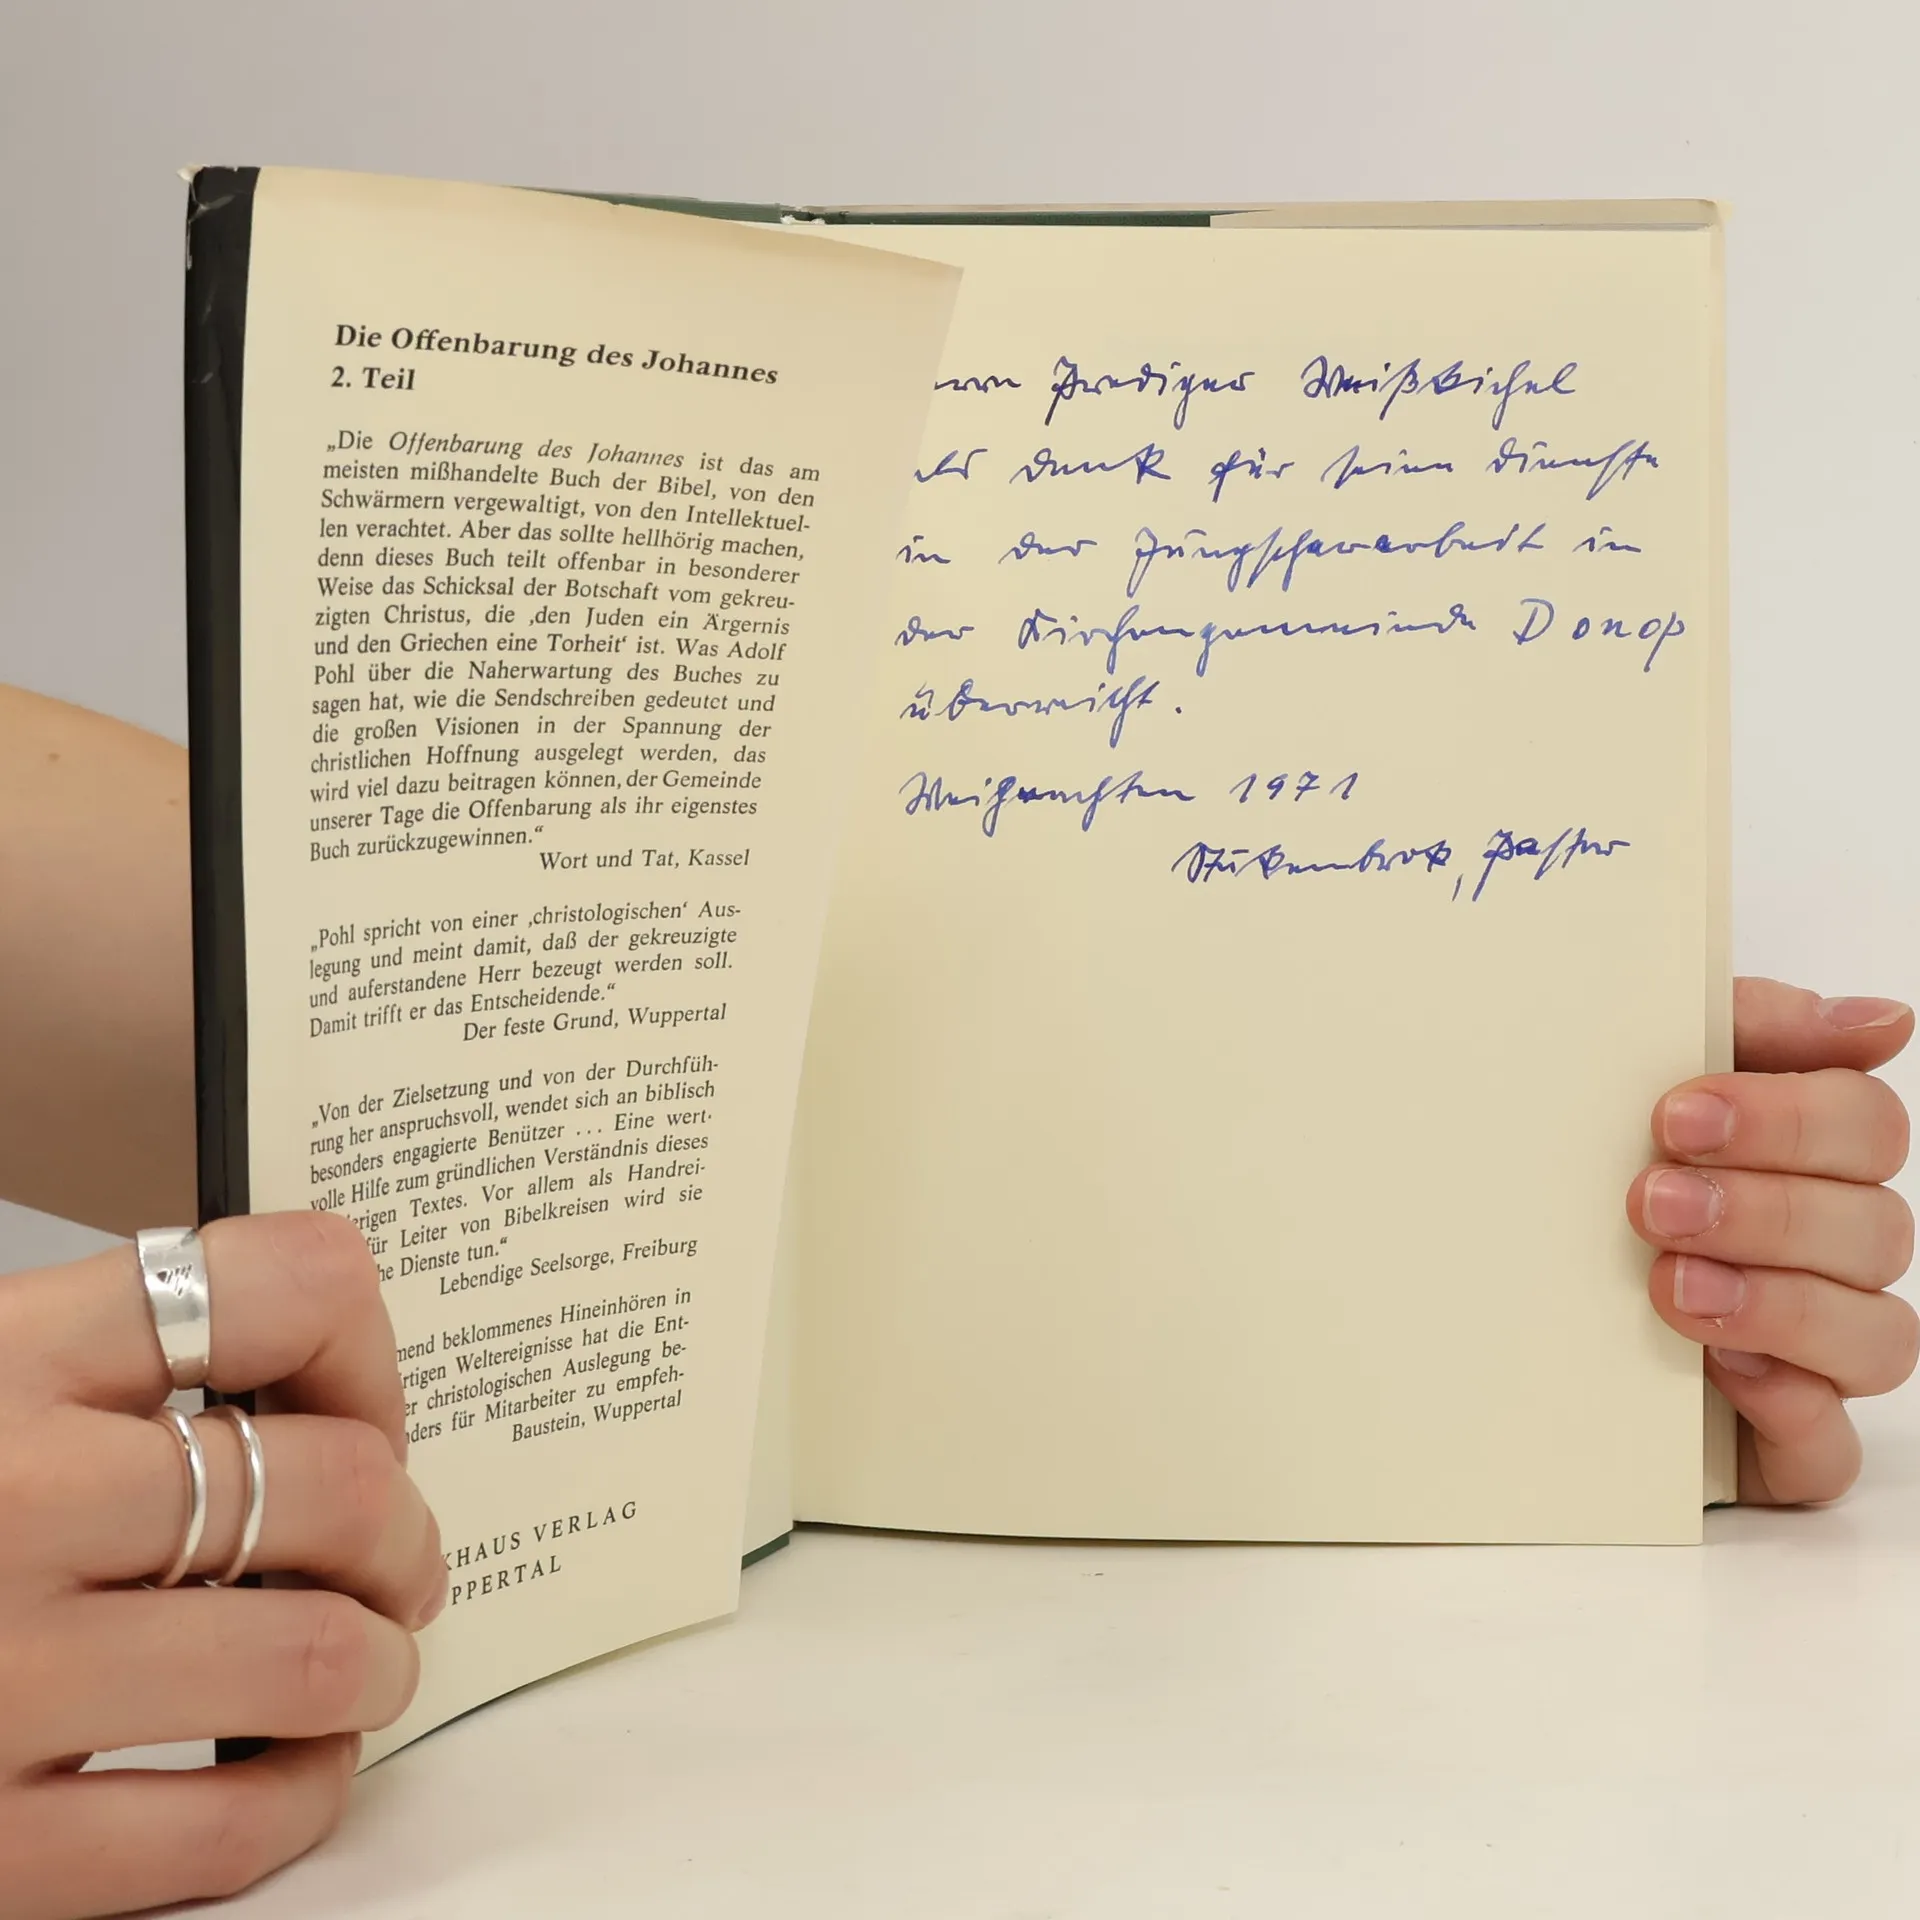 Die Offenbarung des Johannes
2. Teil
„Die Offenbarung des Johannes ist das am
meisten mißhandelte Buch der Bibel, von den
Schwärmern vergewaltigt, von den Intellektuel-
len verachtet. Aber das sollte hellhörig machen,
denn dieses Buch teilt offenbar in besonderer
Weise das Schicksal der Botschaft vom gekreu-
zigten Christus, die ‚den Juden ein Ärgernis
und den Griechen eine Torheit‘ ist. Was Adolf
Pohl über die Naherwartung des Buches zu
sagen hat, wie die Sendschreiben gedeutet und
die großen Visionen in der Spannung der
christlichen Hoffnung ausgelegt werden, das
wird viel dazu beitragen können, der Gemeinde
unserer Tage die Offenbarung als ihr eigenstes
Buch zurückzugewinnen.“
Wort und Tat, Kassel
„Pohl spricht von einer ‚christologischen‘ Aus-
legung und meint damit, daß der gekreuzigte
und auferstandene Herr bezeugt werden soll.
Damit trifft er das Entscheidende.“
Der feste Grund, Wuppertal
„Von der Zielsetzung und von der Durchfüh-
rung her anspruchsvoll, wendet sich an biblisch
besonders engagierte Benützer ... Eine wert-
volle Hilfe zum gründlichen Verständnis dieses
erigen Textes. Vor allem als Handrei-
für Leiter von Bibelkreisen wird sie
he Dienste tun.“
Lebendige Seelsorge, Freiburg
mend beklommenes Hineinhören in
rtigen Weltereignisse hat die Ent-
er christologischen Auslegung be-
nders für Mitarbeiter zu empfeh-
Baustein, Wuppertal
KHAUS VERLAG
PPERTAL
errn Prediger Weißbichel
als Dank für seine Dienste
in der Jungschararbeit in
der Kirchengemeinde Donop
überreicht.
Weihnachten 1971
Stükenbrok, Pastor